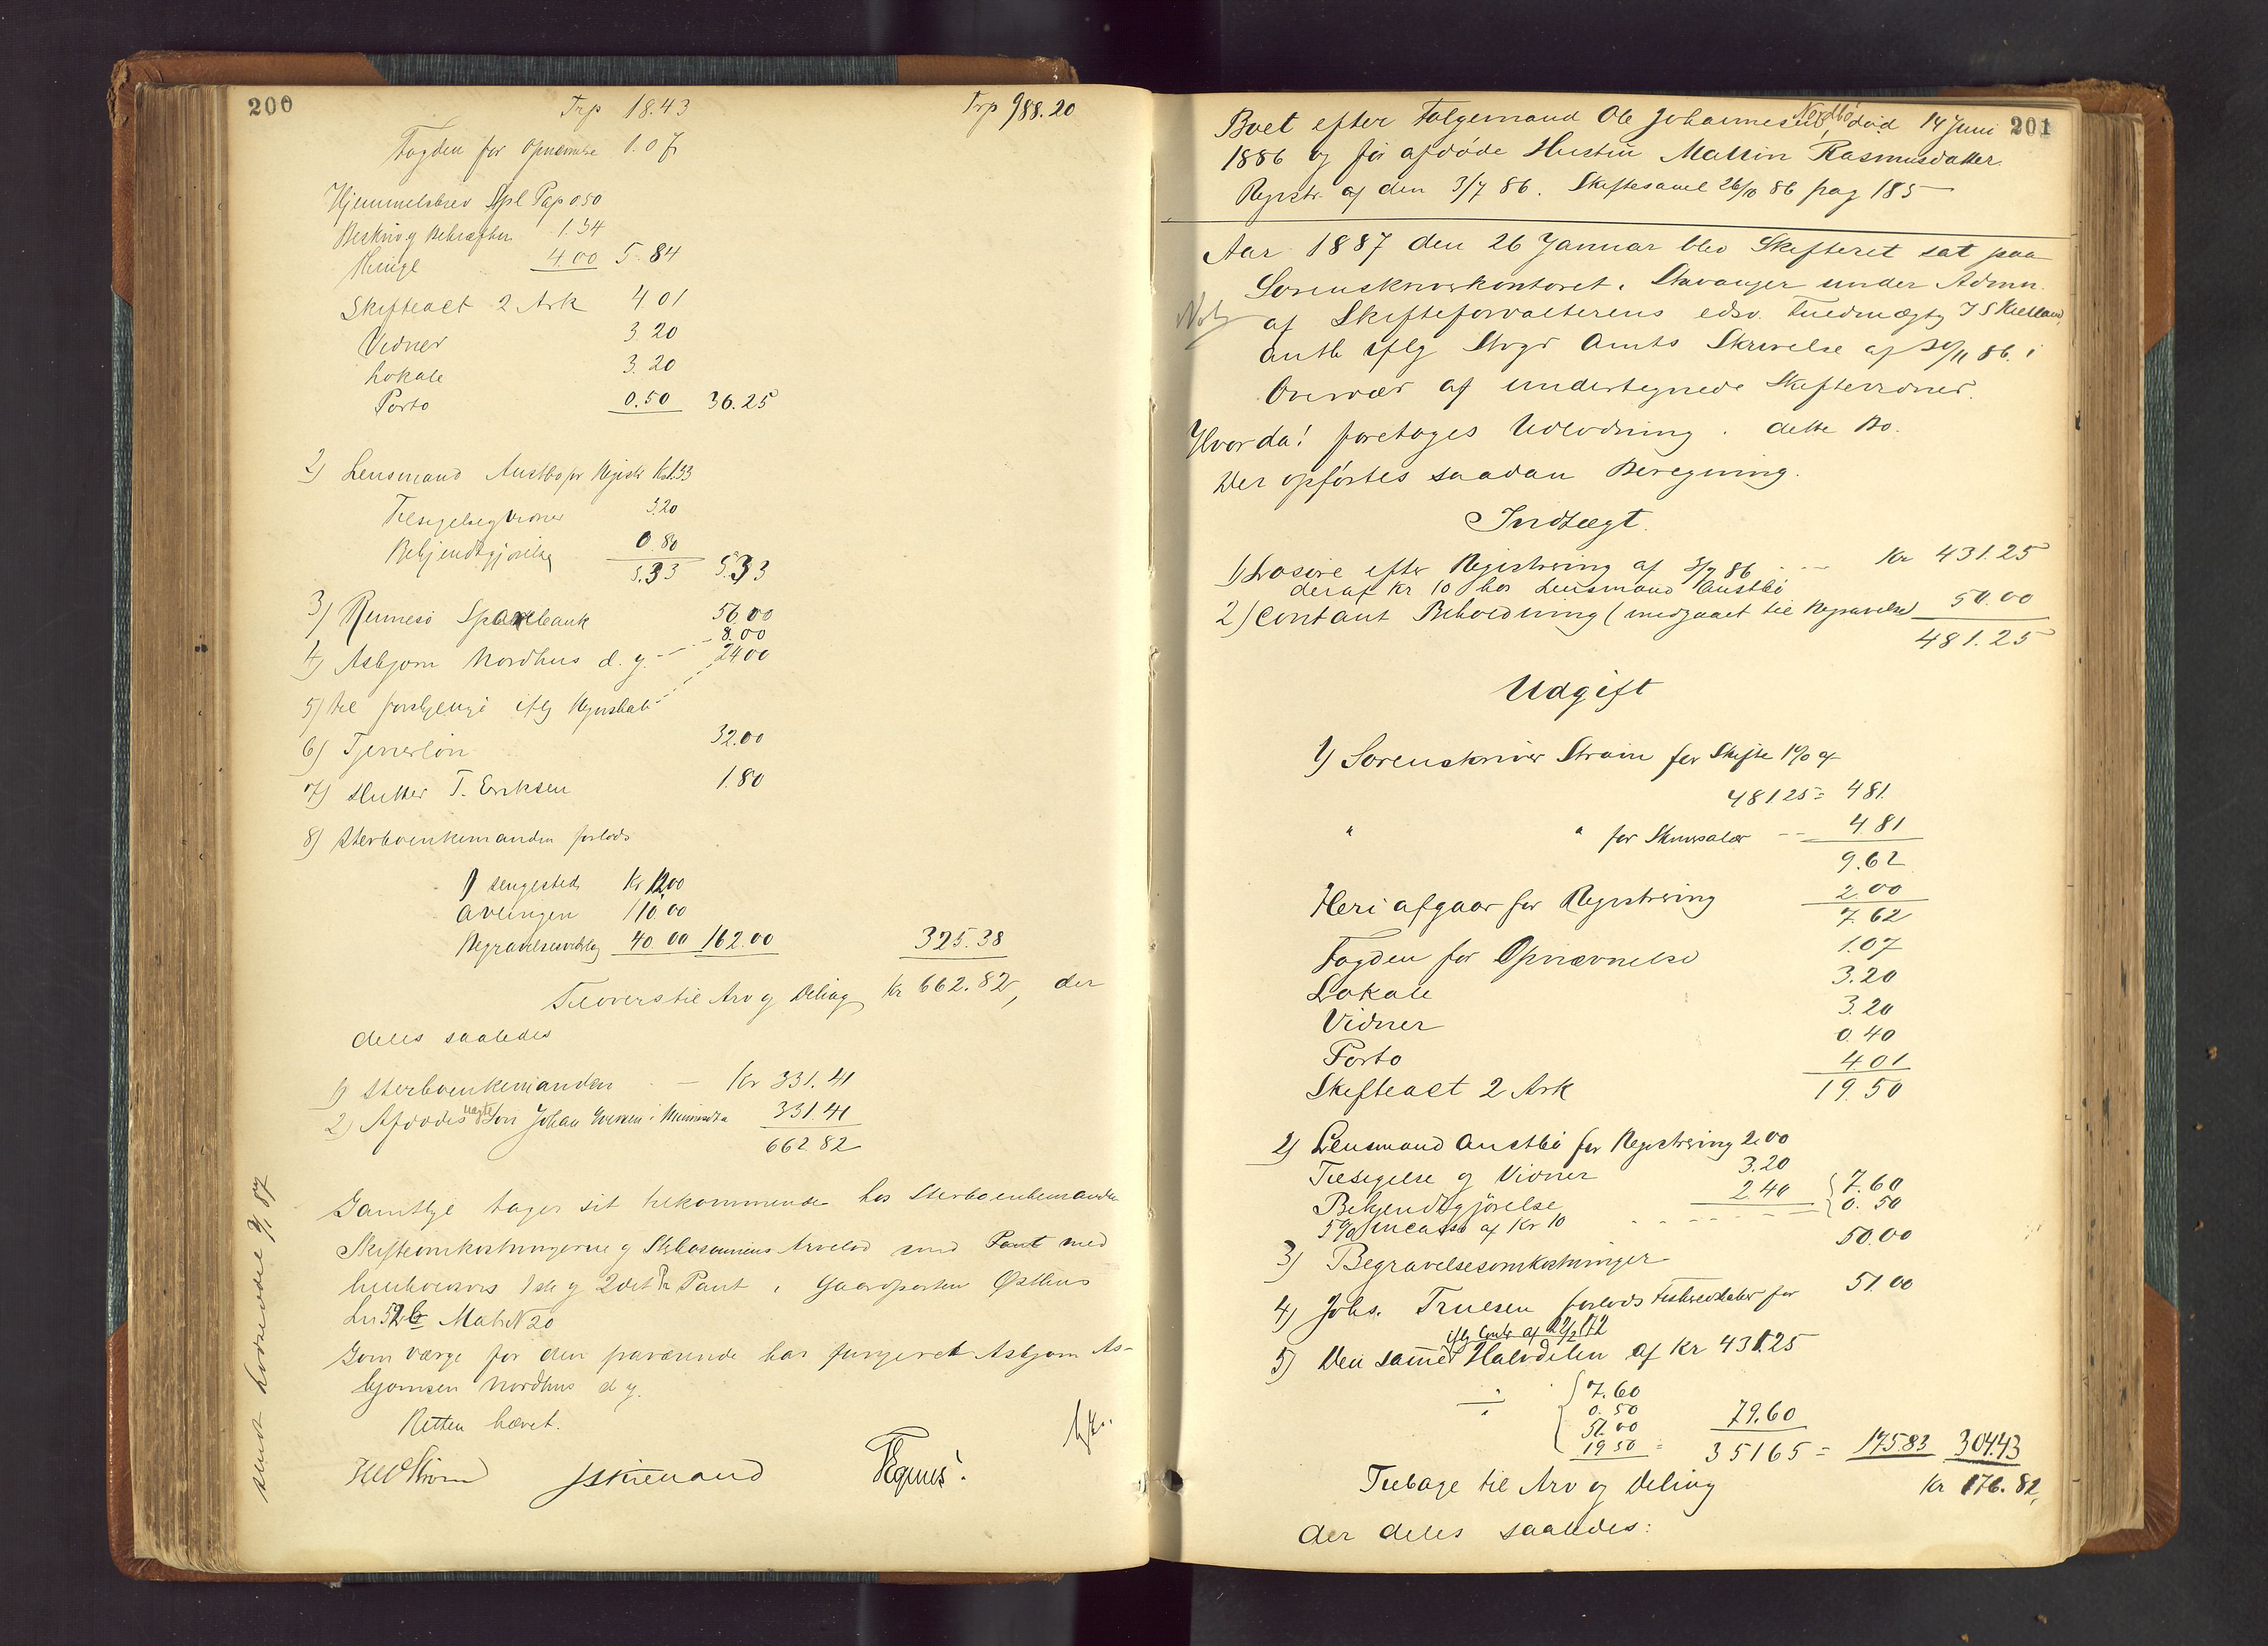 200
Trp 18.43 Trp 988.20
Fogden for Opnævnelse 1.07
Hjemmelsbrev Stpl Pap 0.50
Beskriv og Bekræftn 1.34
Thingl 4.00 5.84
Skifteact 2 Ark 4 01
Vidner 3.20
Lokale 3.20
Porto 0.50 36.25
2) Lensmand Austbo for Registr Kr 1.33
Tilsigelse og Vidner 3.20
Bekjendtgjørelse 0.80
5.33 5.33
3) Rennesö Sparebank 56.00
8.00
4) Asbjørn Nordhus d. y. 24 00
5) til forskjellige iflg Regnskab
6) Tjenerløn 32.00
7) Hutter T. Eriksen 1.80
8) Sterboenkemanden forlods
1 sengested Kr 12.00
Avlingen 110.00
Begravelsesudlæg 40.00 162.00 325.38
Tilovers til Arv og Deling Kr 662.82, der
deles saaledes
1) Sterboenkemanden — Kr 331.41
2) Afdødes ægte Søn Johan Iversen i Minnesota 331.41
662 82
Samtlige tager sit tilkommende hos Sterboenkemanden
Skifteomkostningerne og Johan Arvelod med Pant med
henholdsvis 1ste og 2det Pr Pant i Gaardparten Østhus
Ln 52b Mat N 20
Som værge for den fraværende har fungeret Asbjørn As-
bjørnsen Nordhus d y.
Retten hævet.
HWStrøm JSKielland
Sluttet
201
Boet efter Følgemand Ole Johannesen Nordbö, død 14 Juni
1886 og før afdöde Hustru Mallin Rasmusdatter
Registr. af den 3/7 86. Skiftesaml 26/10 86 pag 185
Aar 1887 den 26 Januar blev Skifteret sat paa
Sorenskriverkontoret i Stavanger under Admn.
Not
af Skifteforvalterens edsv. Fuldmægtig J S Kielland,
auth iflg Stvgr Amts Skrivelse af 30/11 86. i
Overvær af undertegnede Skiftevidner.
Hvorda! foretages Udlodning i dette Bo.
Der opförtes saadan Beregning.
Indtægt.
1) Løsøre efter Registrering af 3/7 86 - - - Kr 431.25
deraf Kr 10 hos Lensmand Austbö
2) Contant Beholdning (medgaaet til Begravelse) 50.00
481.25
Udgift
1) Sorenskriver Strøm for Skifte 1% af
481 25 = 4 81.
" " for Skriversalær -- 4.81
9.62
Heri afgaar for Registrering 2 00
7.62
Fogden for Opnævnelse 1.07
Lokale 3.20
Vidner 3.20
Porto 0.40
Skifteact 2 Ark 4 01
19.50
2) Lensmand Austbö for Registrering 2.00
Tilsigelse og Vidner 3.20
Bekjendtgjörelse 2 40 7.60
5% Incasso af Kr 10 - - - - - 0.50
3) Begravelsesomkostninger 50.00
4) Johs. Truesen forlods Fiskeredskaber for 51.00
iflg Contr af 22/2 82
5) Den samme Halvdelen af Kr 431.25
÷ 7.60
0.50
51.00 79.60
19 50 = 351 65 = 175.83 304.43
Tilbage til Arv og Deling Kr 176.82,
der deles saaledes: